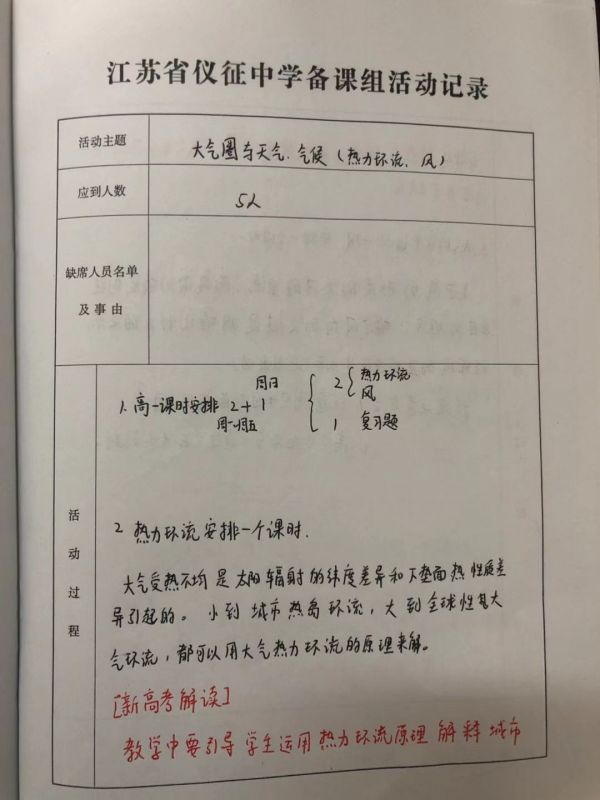 江苏省仪征中学备课组活动记录
活动主题
大气圈与天气、气候（热力环流、风）
应到人数
5人
缺席人员名单
及事由
活动过程
周日
1. 高一课时安排 2+1
周一~周五
2 热力环流
风
1 复习题
2 热力环流安排一个课时.
大气受热不均是太阳辐射的纬度差异和下垫面热性质差
异引起的。小到城市热岛环流，大到全球性大
气环流，都可以用大气热力环流的原理来解。
[新高考解读]
教学中要引导学生运用热力环流原理解释城市